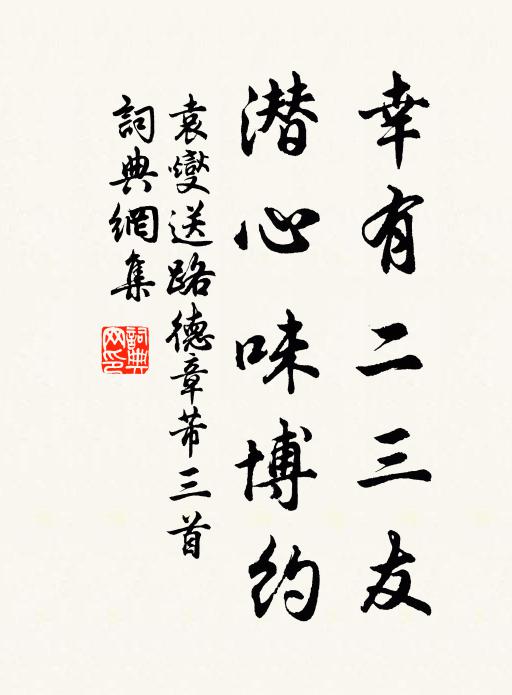 幸有二三友
潜心味博約
袁燮送路德章芾三首
詞典網集
詞典网印